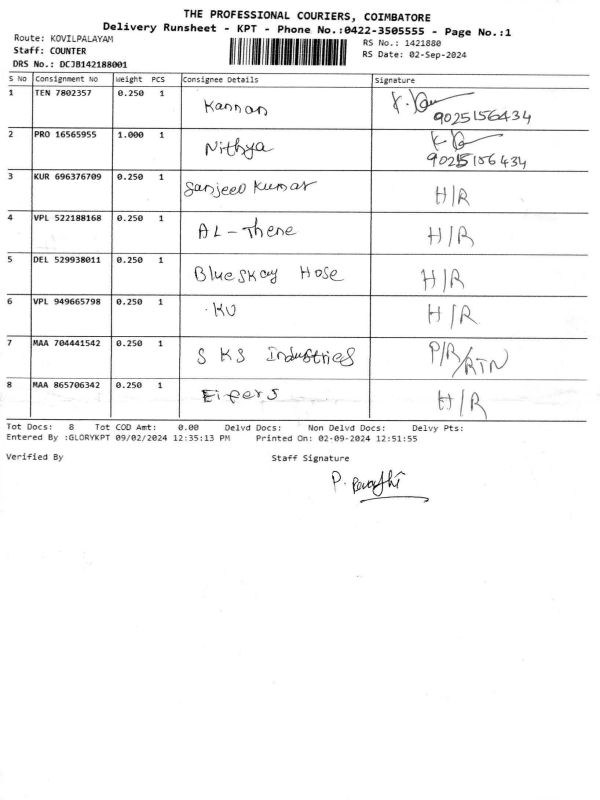 THE PROFESSIONAL COURIERS, COIMBATORE
Delivery Runsheet - KPT - Phone No.:0422-3505555 - Page No.:1
Route: KOVILPALAYAM RS No.: 1421880
Staff: COUNTER RS Date: 02-Sep-2024
DRS No.: DCJB142188001
S No Consignment No Weight PCS Consignee Details Signature
1 TEN 7802357 0.250 1 Kannan K.
9025156434
2 PRO 16565955 1.000 1 Nithya K
9025156434
3 KUR 696376709 0.250 1 Sanjeev Kumar H/R
4 VPL 522188168 0.250 1 AL-Thene H/R
5 DEL 529938011 0.250 1 Blueskay Hose H/R
6 VPL 949665798 0.250 1 .KU H/R
7 MAA 704441542 0.250 1 S KS Industries P/R/RTN
8 MAA 865706342 0.250 1 Eifers H/R
Tot Docs: 8 Tot COD Amt: 0.00 Delvd Docs: Non Delvd Docs: Delvy Pts:
Entered By :GLORYKPT 09/02/2024 12:35:13 PM Printed On: 02-09-2024 12:51:55
Verified By Staff Signature
P. Revathi